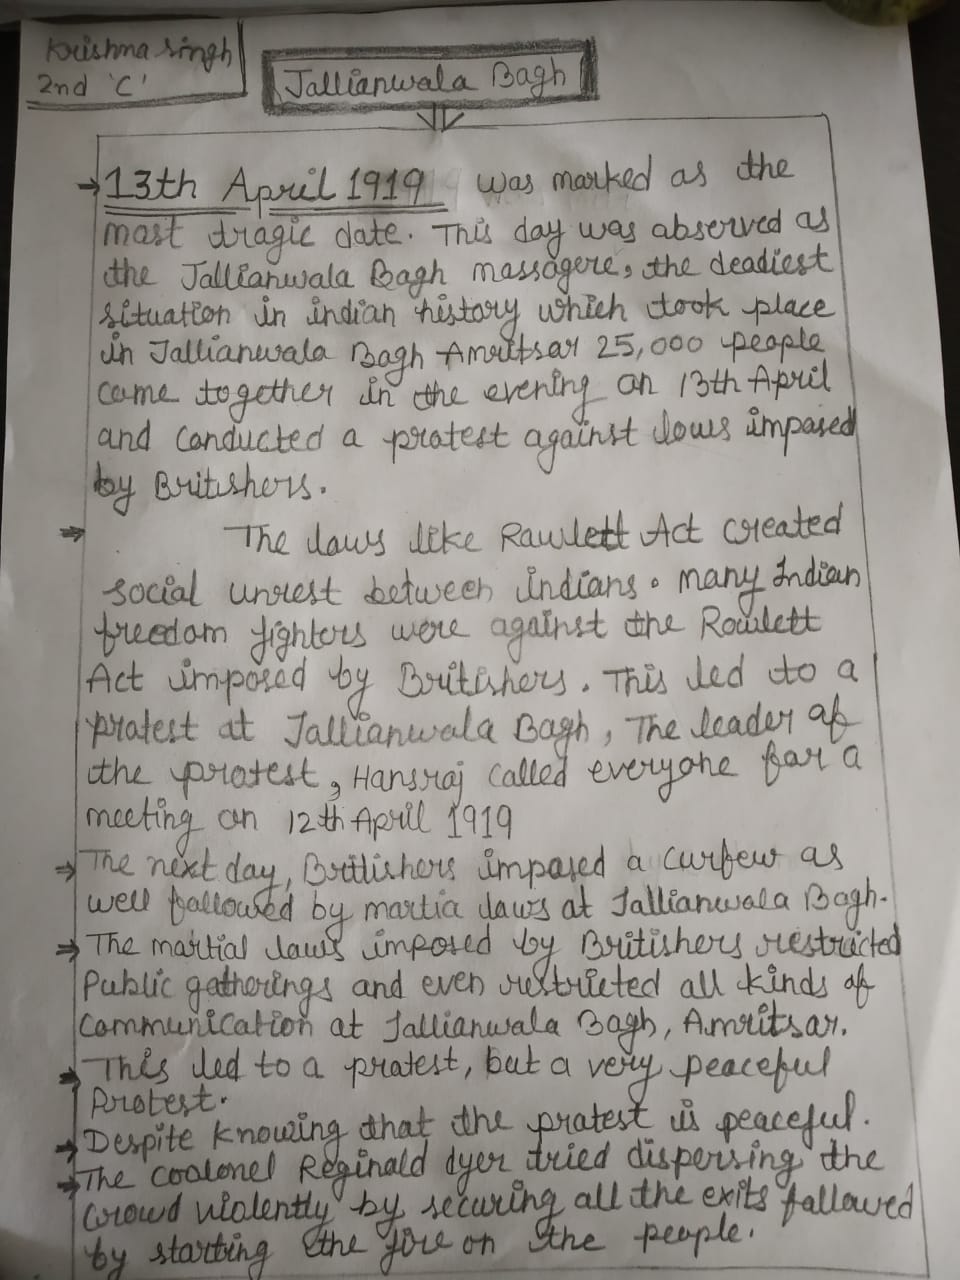 Krishna Singh
2nd 'C'
Jallianwala Bagh
→ 13th April 1919 was marked as the
most tragic date. This day was observed as
the Jallianwala Bagh massagere, the deadiest
situation in indian history which took place
in Jallianwala Bagh Amritsar 25,000 people
came together in the evening on 13th April
and conducted a protest against laws imposed
by Britishers.
→ The laws like Rawlett Act created
social unrest between indians. many Indian
freedom fighters were against the Rowlett
Act imposed by Britishers. This led to a
protest at Jallianwala Bagh, The leader of
the protest, Hansraj called everyone for a
meeting on 12th April 1919
→ The next day, Britishers imposed a curfew as
well followed by martia laws at Jallianwala Bagh.
→ The martial laws imposed by Britishers restricted
Public gatherings and even restricted all kinds of
communication at Jallianwala Bagh, Amritsar.
→ This led to a protest, but a very peaceful
Protest.
→ Despite knowing that the protest is peaceful.
→ The coalonel Reginald dyer tried dispersing the
crowd violently by securing all the exits followed
by starting the fire on the people.